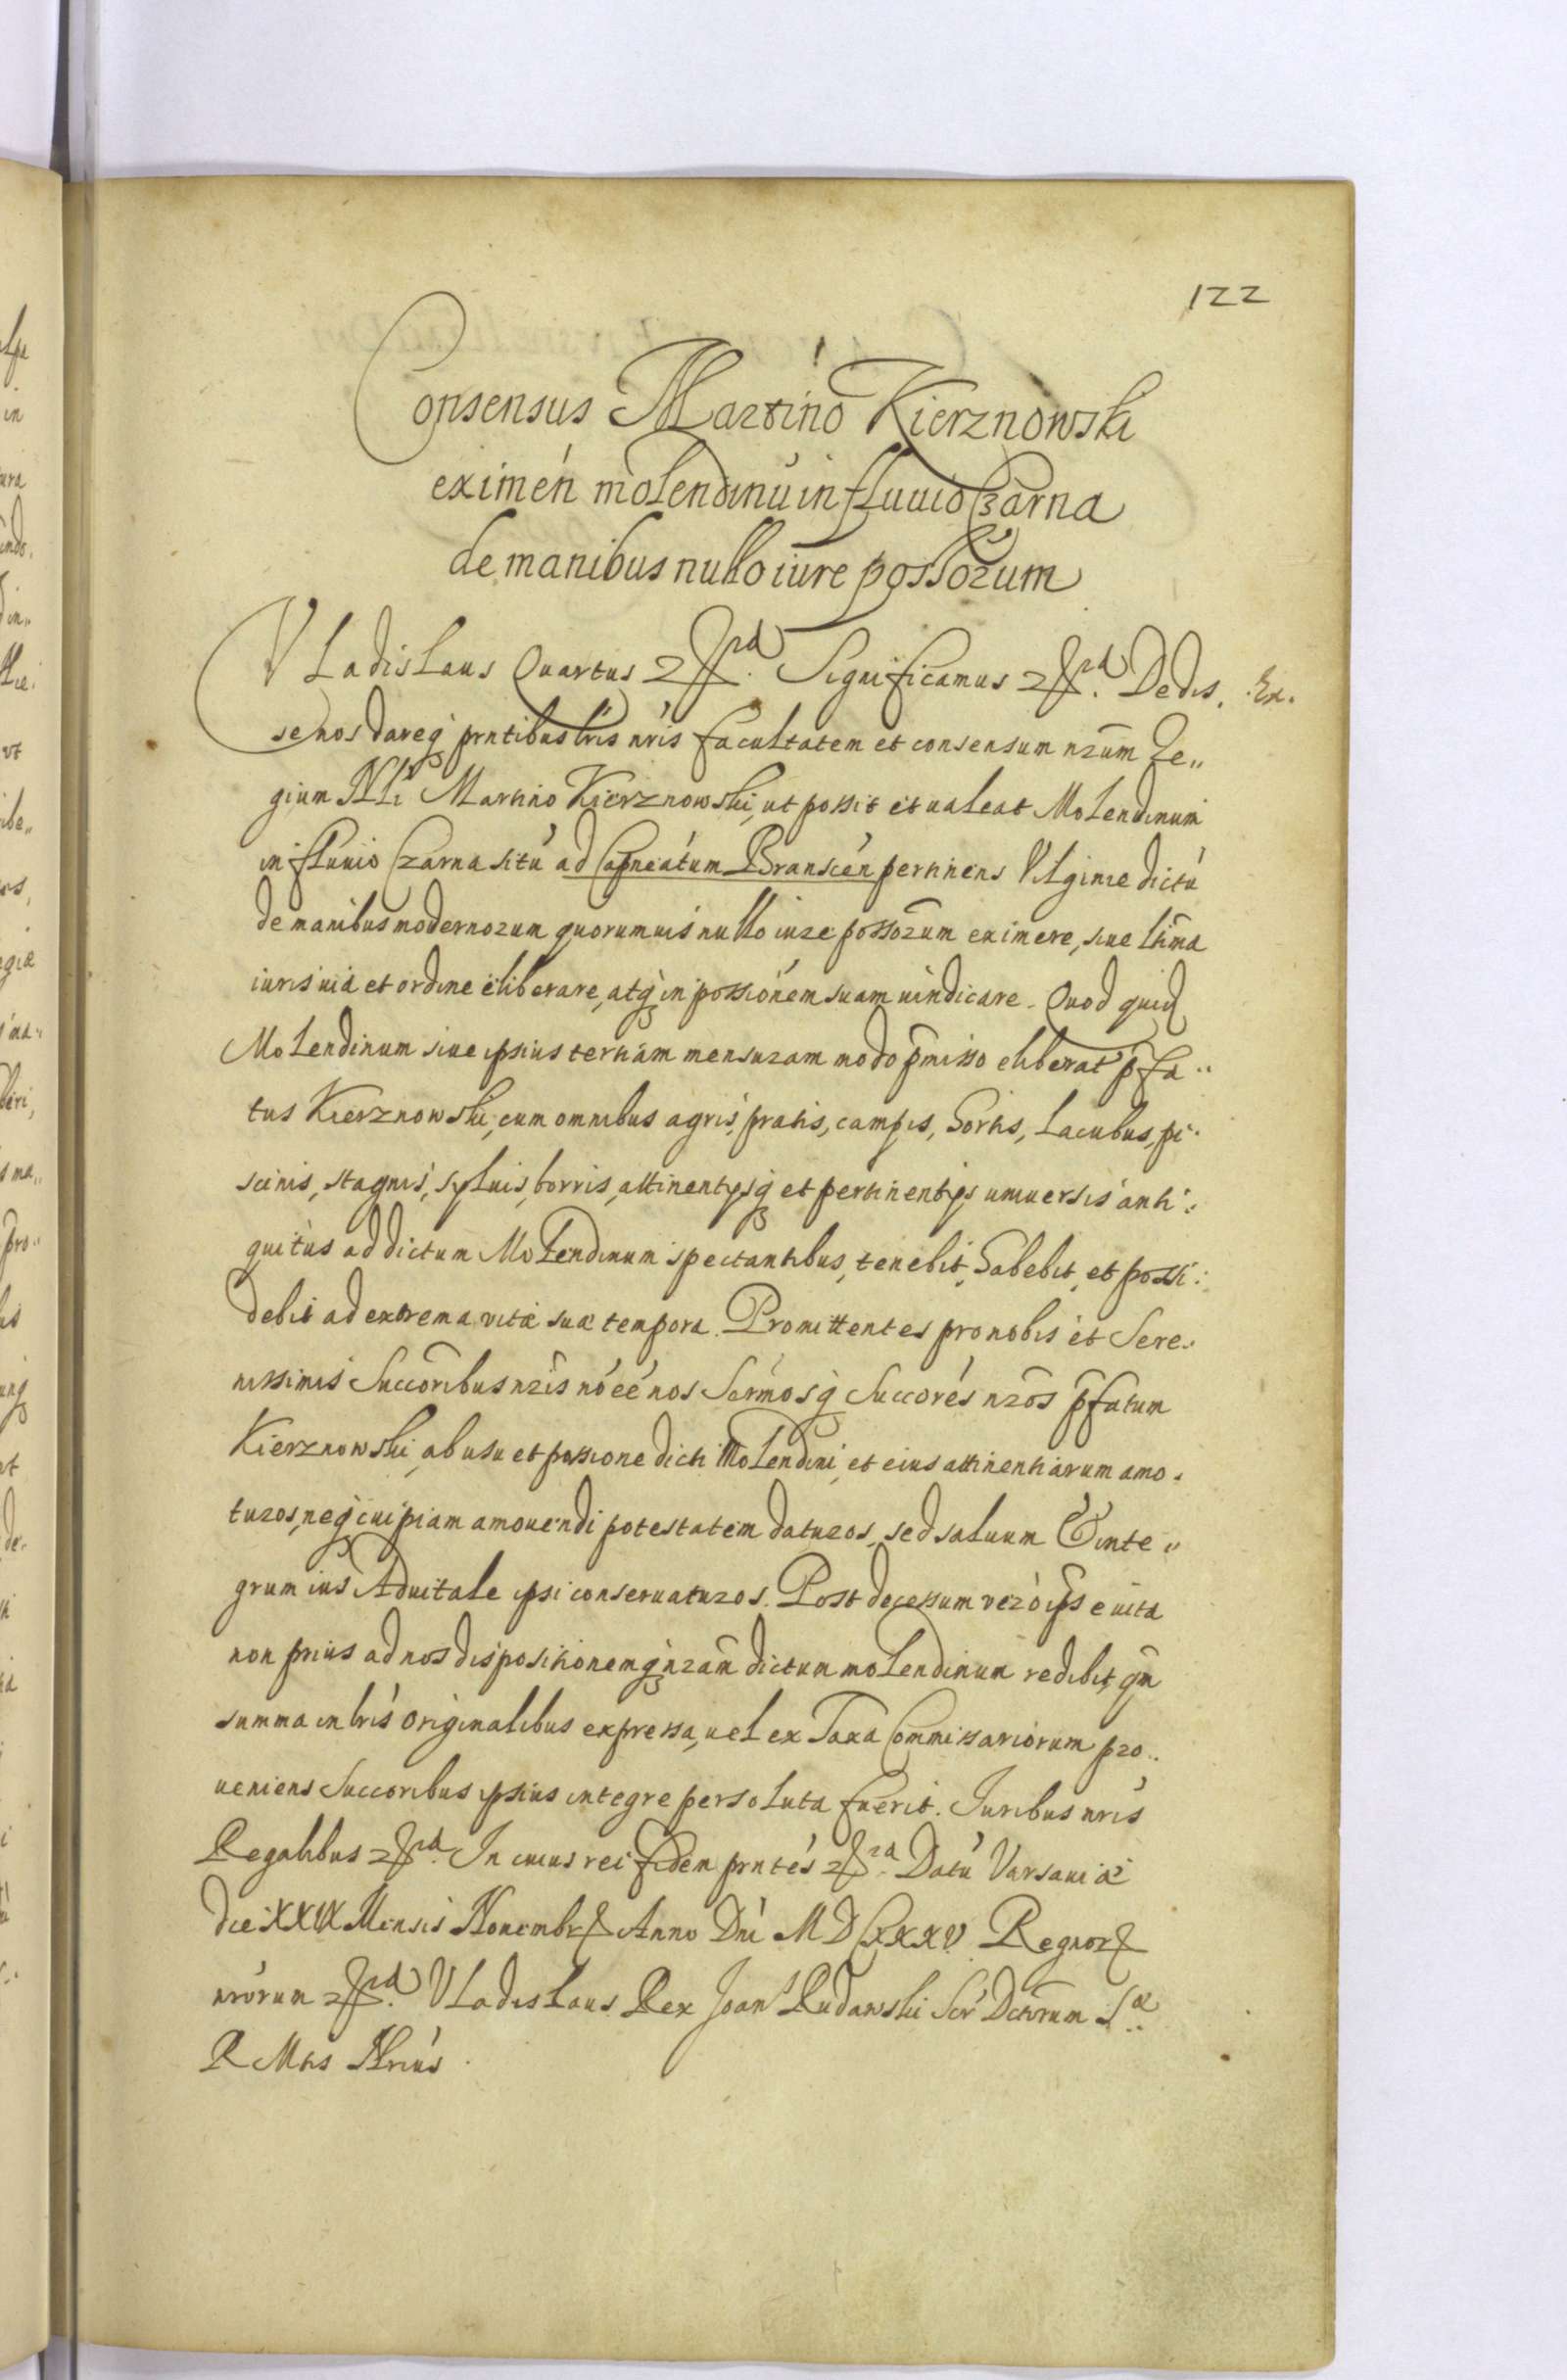 122
Consensus Martino Kierznowski
eximen molendinu in fluuio Czarna
de manibus nullo iure possorum
Vladislaus Quartus Significamus Dedis, Ex.
se nos dareq prntibus lris nris facultatem et consensum nrum Re„
gium Nli Martino Kierznowski, ut possit et ualeat Molendinum
in fluuio Czarna situ ad Capneatum Branscen pertinens Vlginie dictu
de manibus modernorum quorumuis nullo iure possorum eximere, siue ltima
iuris uia et ordine eliberare, atq in possionem suam uindicare. Quod quid
Molendinum siue ipsius tertiam mensuram modo pmisso eliberat pfa„
tus Kierznowski, cum omnibus agris, pratis, campis, hortis, lacubus, pi„
scinis, stagnis, syluis, borris, attinentysq et pertinentys uniuersis anti„
quitus ad dictum Molendinum spectantibus, tenebit, habebit, et possi„
debit ad extrema vitæ suæ tempora. Promittentes pro nobis et Sere„
nissimis Succoribus nris no ee nos Sermosq Succores nros pfatum
Kierznowski, ab usu et possione dicti Molendini, et eius attinentiarum amo„
turos, neq cuipiam amouendi potestatem daturos, sed saluum & inte„
grum ius Aduitale ipsi conseruaturos. Post decessum vero ips e uita
non prius ad nos dispositionemq nram dictum molendinum redibit, qm
summa in lris originalibus expressa, uel ex Taxa Commissariorum pro„
ueniens Succoribus ipsius integre persoluta fuerit. Iuribus nris
Regalibus In cuius rei fidem prntes Datu Varsauiæ
die XXIX Mensis Nouembr Anno Dni MDCXXXV Regnor
nrorum Vladislaus Rex Joan Rudawski Scr Dctorum S
R Mtis Nrius